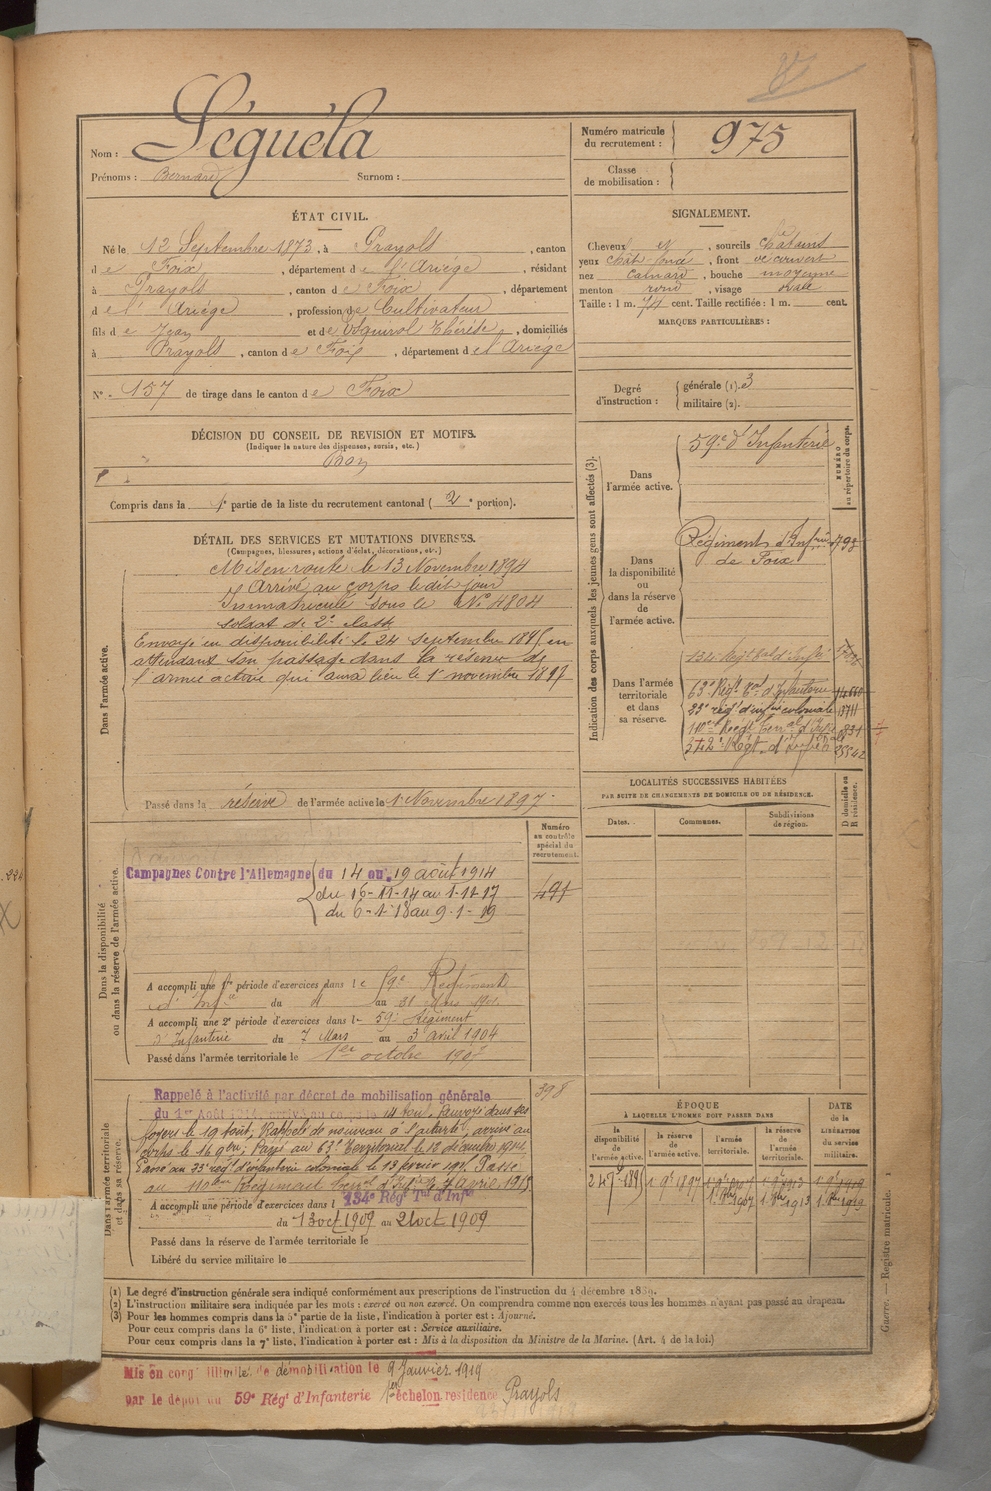 Nom : Séguéla
Prénoms : Bernard Surnom :
Numéro matricule du recrutement : 975
Classe de mobilisation :
ÉTAT CIVIL.
Né le 12 Septembre 1873, à Prayols, canton
de Foix, département de l'Ariège, résidant
à Prayols, canton de Foix, département
de l'Ariège, profession de Cultivateur
fils de Jean et de Esquirol Thérèse, domiciliés
à Prayols, canton de Foix, département de l'Ariège
N° 157 de tirage dans le canton de Foix
SIGNALEMENT.
Cheveux et, sourcils châtains
yeux chât. foncé, front découvert
nez camard, bouche moyenne
menton rond, visage ovale
Taille : 1 m. 74 cent. Taille rectifiée : 1 m. cent.
MARQUES PARTICULIÈRES :
Degré d'instruction : générale (1). 3
militaire (2).
DÉCISION DU CONSEIL DE REVISION ET MOTIFS.
(Indiquer la nature des dispenses, sursis, etc.)
Bon
Compris dans la 1e partie de la liste du recrutement cantonal (2e portion).
DÉTAIL DES SERVICES ET MUTATIONS DIVERSES.
(Campagnes, blessures, actions d'éclat, décorations, etc.)
Dans l'armée active.
Mis en route le 13 Novembre 1894
Arrivé au corps le dit jour
Immatriculé sous le N° 4804
soldat de 2e classe
Envoyé en disponibilité le 24 septembre 1895 en
attendant son passage dans la réserve de
l'armée active qui aura lieu le 1er novembre 1897
Passé dans la réserve de l'armée active le 1er Novembre 1897.
Indication des corps auxquels les jeunes gens sont affectés (3).
NUMÉRO au répertoire du corps.
Dans l'armée active.
59e d'Infanterie
Dans la disponibilité ou dans la réserve de l'armée active.
Régiment d'Infrie
de Foix
Dans l'armée territoriale et dans sa réserve.
134e Régt tal d'Infrie
63e Régt tal d'Infanterie
23e régt d'infrie coloniale 13711
110e Régt terral d'Infrie 831
Régt d'Infrie 25542
LOCALITÉS SUCCESSIVES HABITÉES
PAR SUITE DE CHANGEMENTS DE DOMICILE OU DE RÉSIDENCE.
Dates.
Communes.
Subdivisions de région.
D domicile ou R résidence.
Numéro au contrôle spécial du recrutement.
491
Dans la disponibilité ou dans la réserve de l'armée active.
Campagnes Contre l'Allemagne du 14 au 19 août 1914
du 16-11-14 au 1-11-17
du 6-1-18 au 9-1-19
A accompli une 1re période d'exercices dans le 59e Régiment
d'Infrie du 4 au 31 Mars 1901
A accompli une 2e période d'exercices dans le 59e Régiment
d'Infanterie du 7 Mars au 3 avril 1904
Passé dans l'armée territoriale le 1er octobre 1907
398
Dans l'armée territoriale et dans sa réserve.
Rappelé à l'activité par décret de mobilisation générale
du 1er Août 1914, arrivé au corps le 14 août. Renvoyé dans ses
foyers le 19 Août, Rappelé de nouveau à l'activité, arrivé au
corps le 16 9bre; Passé au 63e Territorial le 12 décembre 1914
Passé au 23e régt d'infanterie coloniale le 13 février 1915. Passé
au 110ème Régiment terral d'Infie le 7 avril 1915
A accompli une période d'exercices dans l 134e Régt Tal d'Infie
du 13 oct 1909 au 21 oct 1909
Passé dans la réserve de l'armée territoriale le
Libéré du service militaire le
ÉPOQUE
À LAQUELLE L'HOMME DOIT PASSER DANS
DATE de la LIBÉRATION du service militaire.
la disponibilité de l'armée active.
la réserve de l'armée active.
l'armée territoriale.
la réserve de l'armée territoriale.
24 7bre 1895
1 9bre 1897
1 9bre 1907
1 9bre 1913
1 9bre 1919
1 8bre 1907
1 8bre 1913
1 8bre 1919
(1) Le degré d'instruction générale sera indiqué conformément aux prescriptions de l'instruction du 4 décembre 1889.
(2) L'instruction militaire sera indiquée par les mots : exercé ou non exercé. On comprendra comme non exercés tous les hommes n'ayant pas passé au drapeau.
(3) Pour les hommes compris dans la 5e partie de la liste, l'indication à porter est : Ajourné.
Pour ceux compris dans la 6e liste, l'indication à porter est : Service auxiliaire.
Pour ceux compris dans la 7e liste, l'indication à porter est : Mis à la disposition du Ministre de la Marine. (Art. 4 de la loi.)
Guerre. — Registre matricule. 1
Mis en congé illimité de démobilisation le 9 Janvier 1919
par le dépôt du 59e Régt d'Infanterie 1er échelon, residence Prayols